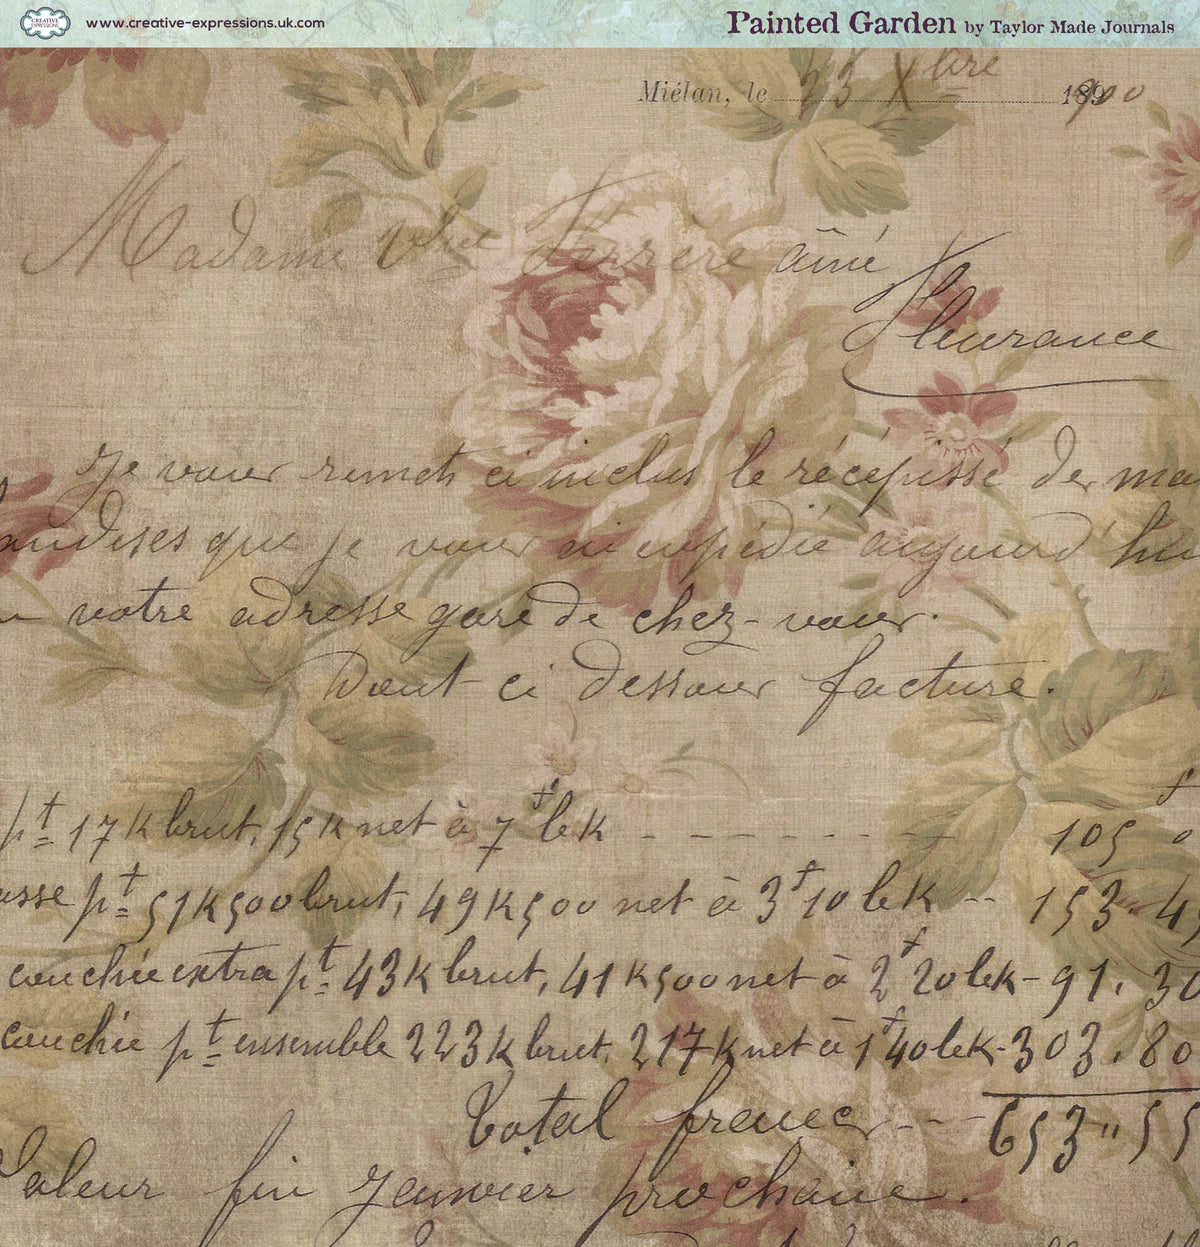 CREATIVE EXPRESSIONS www.creative-expressions.uk.com Painted Garden by Taylor Made Journals
Miélan, le 23 Xbre 1900
Madame Vve Ferrère aîné
Fleurance
Je vous remets ci inclus le récépissé des ma
andises que je vous ai expédié aujourd'hui
votre adresse gare de chez-vous.
Dont ci dessous facture.
pt 17 K brut, 15 K net à 7f le K - - - - - - - - 105 0
asse pt 51 K 500 brut, 49 K 500 net à 3f 10 le K -- 153. 45
couchée extra pt 43 K brut, 41 K 500 net à 2f 20 le K - 91. 30
couchée pt ensemble 223 K brut, 217 K net à 1f 40 le K - 303. 80
Total francs --- 653 " 55
Valeur fin Janvier prochain.